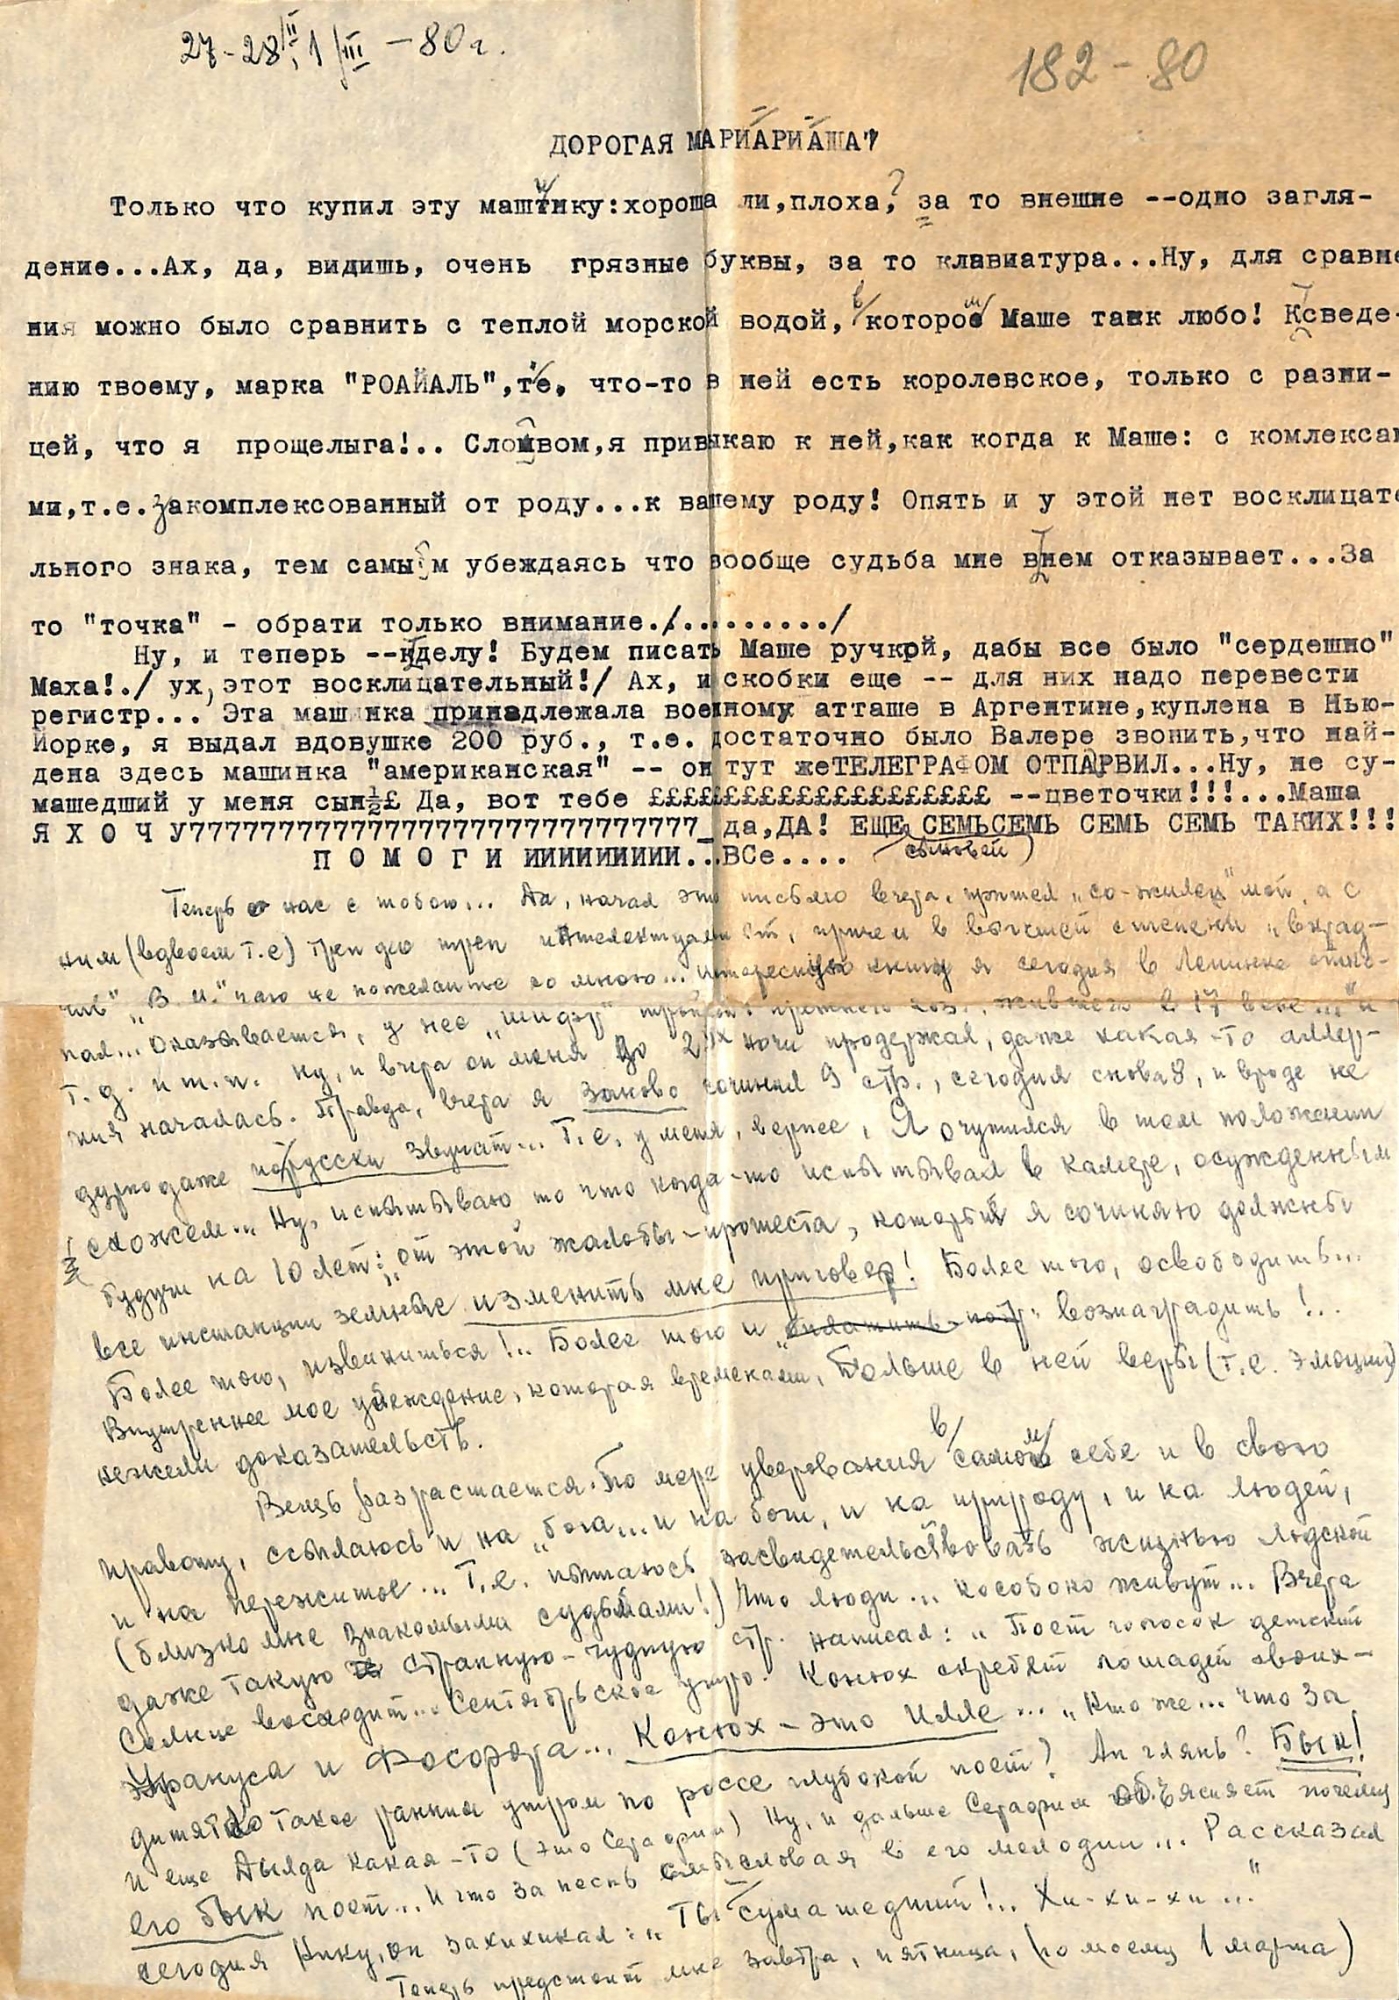 27-28/II, 1/III – 80 г.
182-80
ДОРОГАЯ МАРИАРИАША!
Только что купил эту машинку:хороша ли,плоха? за то внешне --одно загля-
дение...Ах, да, видишь, очень грязные буквы, за то клавиатура...Ну, для сравне
ния можно было сравнить с теплой морской водой, в которой Маше так любо! К сведе-
нию твоему, марка "РОАЙАЛЬ",т.е. что-то в ней есть королевское, только с разни-
цей, что я прощелыга!.. Словом,я привыкаю к ней,как когда к Маше: с комлексам
ми,т.е.закомплексованный от роду...к вашему роду! Опять и у этой нет восклицате
льного знака, тем самым убеждаясь что вообще судьба мне в нем отказывает...За
то "точка" - обрати только внимание./........./
Ну, и теперь --к делу! Будем писать Маше ручкрй, дабы все было "сердешно"
Маха!./ ух, этот восклицательный!/ Ах, и скобки еще -- для них надо перевести
регистр... Эта машинка принадлежала военному атташе в Аргентине,куплена в Нью-
Йорке, я выдал вдовушке 200 руб., т.е. достаточно было Валере звонить,что най-
дена здесь машинка "американская" -- он тут жеТЕЛЕГРАФОМ ОТПАРВИЛ...Ну, не су-
машедший у меня сын½£ Да, вот тебе £££££££££££££££££££ --цветочки!!!...Маша
Я Х О Ч У77777777777777777777777777777_да,ДА! ЕЩЕ СЕМЬСЕМЬ СЕМЬ СЕМЬ ТАКИХ!!!
(сыновей)
П О М О Г И ИИИИИИИИИ...ВСе....
Теперь о нас с тобою... Да, начал это письмо вчера, пришел „со-жилец" мой, а с
ним (вдвоем т.е) треп до треп интелектуалист, причем в высшей степени „вкрад-
чив" „В. и." чаю не пожелаите со мною... интересную книгу я сегодня в Ленинке
пал... Оказывается, у нее „шифр" жившего в 17 веке..." и
т.д. и т.п. Ну, и вчера он меня до 2ух ночи продержал, даже какая-то аллер-
гия началась. Правда, вчера я заново сочинил 9 стр., сегодня снова 8, и вроде не
дурно даже по русски звучат... Т.е. у меня, вернее, Я очутился в том положении
схожем... Ну, испытываю то что когда-то испытывал в камере, осужденным
будучи на 10 лет: „от этой жалобы-протеста, который я сочиняю должны
все инстанции земные изменить мне приговор! Более того, освободить...
Более того, извиниться!.. Более того и вознаградить!..
Внутреннее мое убеждение, которая временами, Больше в ней веры (т.е. эмоции)
нежели доказательств.
Вещь разрастается. По мере уверования в самом себе и в свою
правоту, ссылаюсь и на „бога... и на бога, и на природу, и на людей,
и на пережитое... Т.е. пытаюсь засвидетельствовать жизнью людской
(близко мне знакомыми судьбами!) Что люди... кособоко живут... Вчера
даже такую странную-чудную стр. написал: „Поет голосок детский
Солнце восходит... Сентябрьское утро. Конюх скребет лошадей своих-
Урануса и Фосфора... Конюх – это Илле... „Кто же... что за
дитятко такое ранним утром по россе глубокой поет? Ан глянь? Бык!
и еще Дылда какая-то (это Серафим) Ну, и дальше Серафим объясняет почему
его бык поет... И что за песнь смысловая в его мелодии... Рассказал
сегодня Нику, он захихикал: „Ты сумашедший!.. Хи-хи-хи..."
Теперь предстоит мне завтра, пятница, (по моему 1 марта)